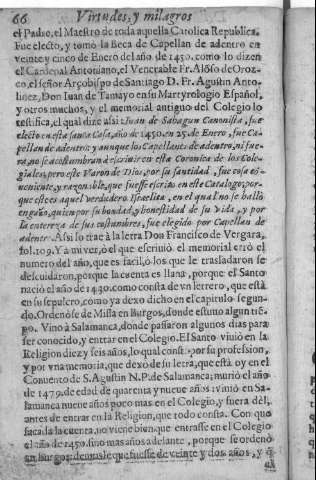 66 Virtudes, y milagros
el Padre, el Maestro de toda aquella Catolica Republica.
Fue electo, y tomò la Beca de Capellan de adentro en
veinte y cinco de Enero del año de 1450. como lo dizen
el Cardenal Antoniano, el Venerable Fr. Alõso de Oroz-
co, el señor Arçobispo de Santiago D. Fr. Agustin Anto-
linez, Don Iuan de Tamayo en su Martyrologio Español,
y otros muchos, y el memorial antiguo del Colegio lo
testifica, el qual dize assi: Iuan de Sahagun Canonista, fue
electo en esta santa Casa, año de 1450. en 25. de Enero, fue Ca-
pellan de adentro: y aunque los Capellanes de adentro, ni fue-
ra, no se acostumbran à escrivir en esta Coronica de los Cole-
giales, pero este Varon de Dios, por su santidad, fue cosa cõ-
ueniente, y razonable, que fuesse escrito en este Catalogo, por-
que este es aquel verdadero Israelita, en el qual no se hallò
engaño, quien por su bondad, y honestidad de su vida, y por
la entereza de sus costumbres, fue elegido por Capellan de
adentro. Assi lo trae à la letra Don Francisco de Vergara,
fol. 109. Y à mi ver, ò el que escriuiò el memorial errò el
numero del año, que es facil, ò los que le trasladaron se
descuidaron, porque la cuenta es llana, porque el Santo
naciò el año de 1430. como consta de vn letrero, que està
en su sepulcro, como ya dexo dicho en el capitulo segun-
do. Ordenòse de Missa en Burgos, donde estuuo algun tiẽ-
po. Vino à Salamanca, donde passaron algunos dias para
ser conocido, y entrar en el Colegio. El Santo viuiò en la
Religion diez y seis años, lo qual consta por su profession,
y por vna memoria, que dexo de su letra, que està oy en el
Conuento de S. Agustin N. P. de Salamanca; murió el año
de 1479. de edad de quarenta y nueue años: viuiò en Sa-
lamanca nueue años poco mas en el Colegio, y fuera del,
antes de entrar en la Religion, que todo consta. Con que
sacada la cuenta, no viene bien, que entrasse en el Colegio
el año de 1450. sino mas adelante, porque se ordenò
en Burgos: demosle que fuesse de veinte y dos años, y